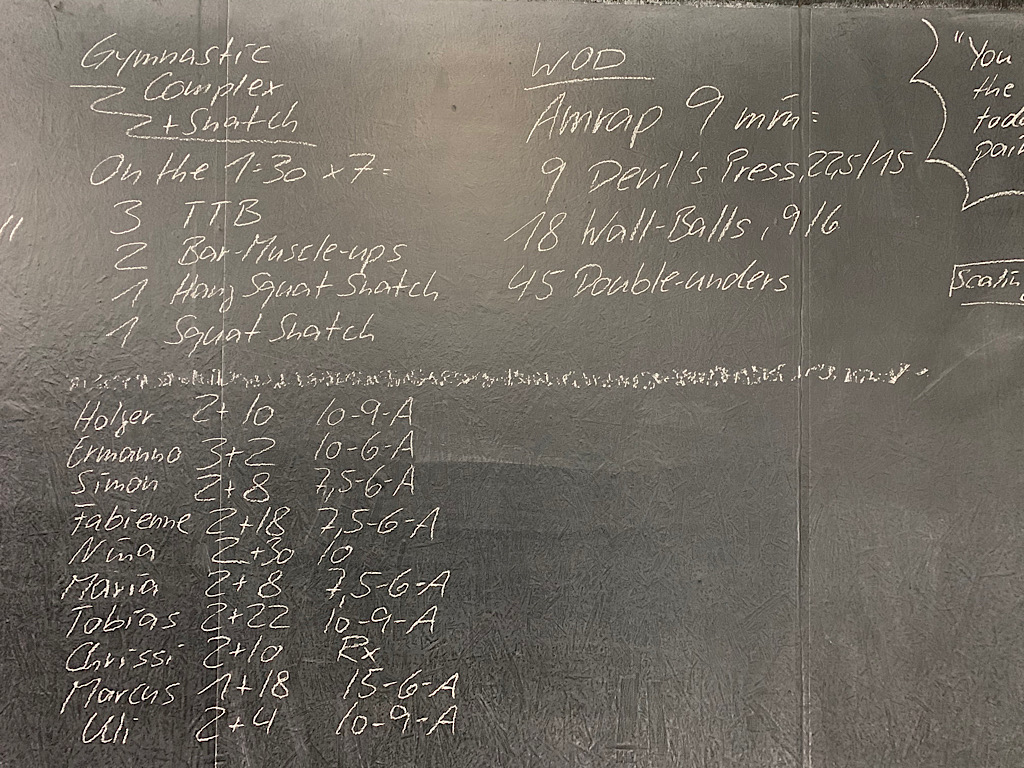 Gymnastic
Complex
+ Snatch
On the 1:30 x 7:
3 TTB
2 Bar-Muscle-ups
1 Hang Squat Snatch
1 Squat Snatch
WOD
Amrap 9 min:
9 Devil's Press, 22,5/15
18 Wall-Balls, 9/6
45 Double-unders
"You
the
toda
pain
Scalin
Holger 2+10 10-9-A
Ermanno 3+2 10-6-A
Simon 2+8 7,5-6-A
Fabienne 2+18 7,5-6-A
Nina 2+30 10
Maria 2+8 7,5-6-A
Tobias 2+22 10-9-A
Chrissi 2+10 Rx
Marcus 1+18 15-6-A
Uli 2+4 10-9-A